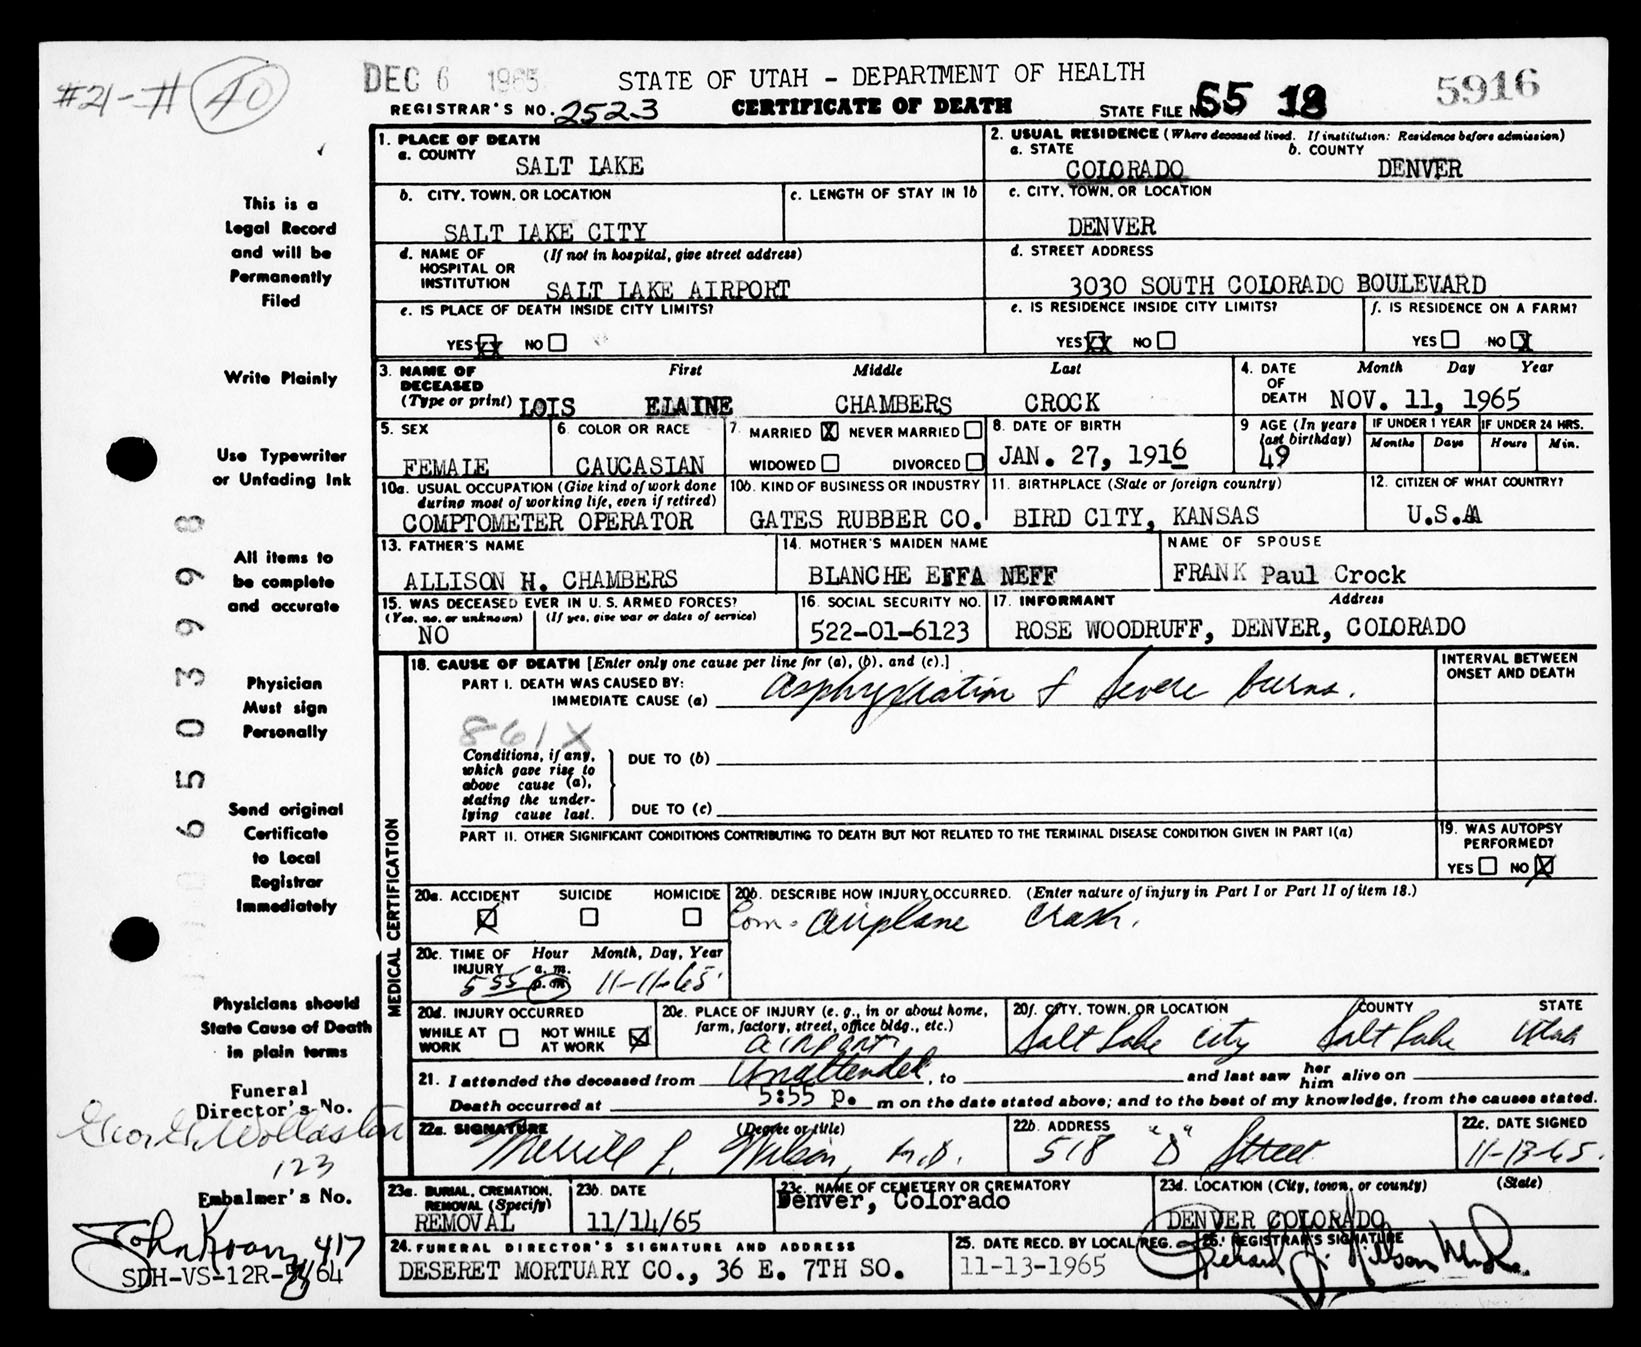 #21-A 40
DEC 6 1965 STATE OF UTAH - DEPARTMENT OF HEALTH 5916
REGISTRAR'S NO. 2523 CERTIFICATE OF DEATH STATE FILE 65 18
This is a
Legal Record
and will be
Permanently
Filed
Write Plainly
Use Typewriter
or Unfading Ink
All items to
be complete
and accurate
Physician
Must sign
Personally
Send original
Certificate
to Local
Registrar
Immediately
Physicians should
State Cause of Death
in plain terms
Funeral
Director's No.
Wollaston
123
Embalmer's No.
John 417
SDH-VS-12R- 64
65 03998
1. PLACE OF DEATH
a. COUNTY
SALT LAKE
2. USUAL RESIDENCE (Where deceased lived. If institution: Residence before admission)
a. STATE b. COUNTY
COLORADO DENVER
b. CITY, TOWN, OR LOCATION
SALT LAKE CITY
c. LENGTH OF STAY IN 1b
c. CITY, TOWN, OR LOCATION
DENVER
d. NAME OF (If not in hospital, give street address)
HOSPITAL OR
INSTITUTION SALT LAKE AIRPORT
d. STREET ADDRESS
3030 SOUTH COLORADO BOULEVARD
e. IS PLACE OF DEATH INSIDE CITY LIMITS?
YES XX NO
e. IS RESIDENCE INSIDE CITY LIMITS?
YES XX NO
f. IS RESIDENCE ON A FARM?
YES NO X
3. NAME OF First Middle Last
DECEASED
(Type or print) LOIS ELAINE CHAMBERS CROCK
4. DATE Month Day Year
OF
DEATH NOV. 11, 1965
5. SEX
FEMALE
6. COLOR OR RACE
CAUCASIAN
7. MARRIED X NEVER MARRIED
WIDOWED DIVORCED
8. DATE OF BIRTH
JAN. 27, 1916
9 AGE (In years
last birthday)
49
IF UNDER 1 YEAR IF UNDER 24 HRS.
Months Days Hours Min.
10a. USUAL OCCUPATION (Give kind of work done
during most of working life, even if retired)
COMPTOMETER OPERATOR
10b. KIND OF BUSINESS OR INDUSTRY
GATES RUBBER CO.
11. BIRTHPLACE (State or foreign country)
BIRD CITY, KANSAS
12. CITIZEN OF WHAT COUNTRY?
U.S.A
13. FATHER'S NAME
ALLISON H. CHAMBERS
14. MOTHER'S MAIDEN NAME
BLANCHE EFFA NEFF
NAME OF SPOUSE
FRANK Paul Crock
15. WAS DECEASED EVER IN U.S. ARMED FORCES?
(Yes, no, or unknown) (If yes, give war or dates of service)
NO
16. SOCIAL SECURITY NO.
522-01-6123
17. INFORMANT Address
ROSE WOODRUFF, DENVER, COLORADO
MEDICAL CERTIFICATION
18. CAUSE OF DEATH [Enter only one cause per line for (a), (b), and (c).]
PART I. DEATH WAS CAUSED BY:
IMMEDIATE CAUSE (a) asphyxiation & severe burns.
INTERVAL BETWEEN
ONSET AND DEATH
861X
Conditions, if any,
which gave rise to
above cause (a),
stating the under-
lying cause last.
DUE TO (b)
DUE TO (c)
PART II. OTHER SIGNIFICANT CONDITIONS CONTRIBUTING TO DEATH BUT NOT RELATED TO THE TERMINAL DISEASE CONDITION GIVEN IN PART I(a)
19. WAS AUTOPSY
PERFORMED?
YES NO X
20a. ACCIDENT SUICIDE HOMICIDE
X
20b. DESCRIBE HOW INJURY OCCURRED. (Enter nature of injury in Part I or Part II of item 18.)
Com. Airplane Crash.
20c. TIME OF Hour Month, Day, Year
INJURY a.m.
5 55 p.m 11-11-65
20d. INJURY OCCURRED
WHILE AT NOT WHILE X
WORK AT WORK
20e. PLACE OF INJURY (e. g., in or about home,
farm, factory, street, office bldg., etc.)
airport
20f. CITY, TOWN, OR LOCATION COUNTY STATE
Salt Lake City Salt Lake Utah
21. I attended the deceased from Unattended, to and last saw her him alive on
Death occurred at 5:55 p. m on the date stated above; and to the best of my knowledge, from the causes stated.
22a. SIGNATURE (Degree or title)
Merrill L. Wilson, M.D.
22b. ADDRESS
518 "D" Street
22c. DATE SIGNED
11-13-65.
23a. BURIAL, CREMATION,
REMOVAL (Specify)
REMOVAL
23b. DATE
11/14/65
23c. NAME OF CEMETERY OR CREMATORY
Denver, Colorado
23d. LOCATION (City, town, or county) (State)
DENVER COLORADO
24. FUNERAL DIRECTOR'S SIGNATURE AND ADDRESS
DESERET MORTUARY CO., 36 E. 7TH SO.
25. DATE RECD. BY LOCAL REG.
11-13-1965
26. REGISTRAR'S SIGNATURE